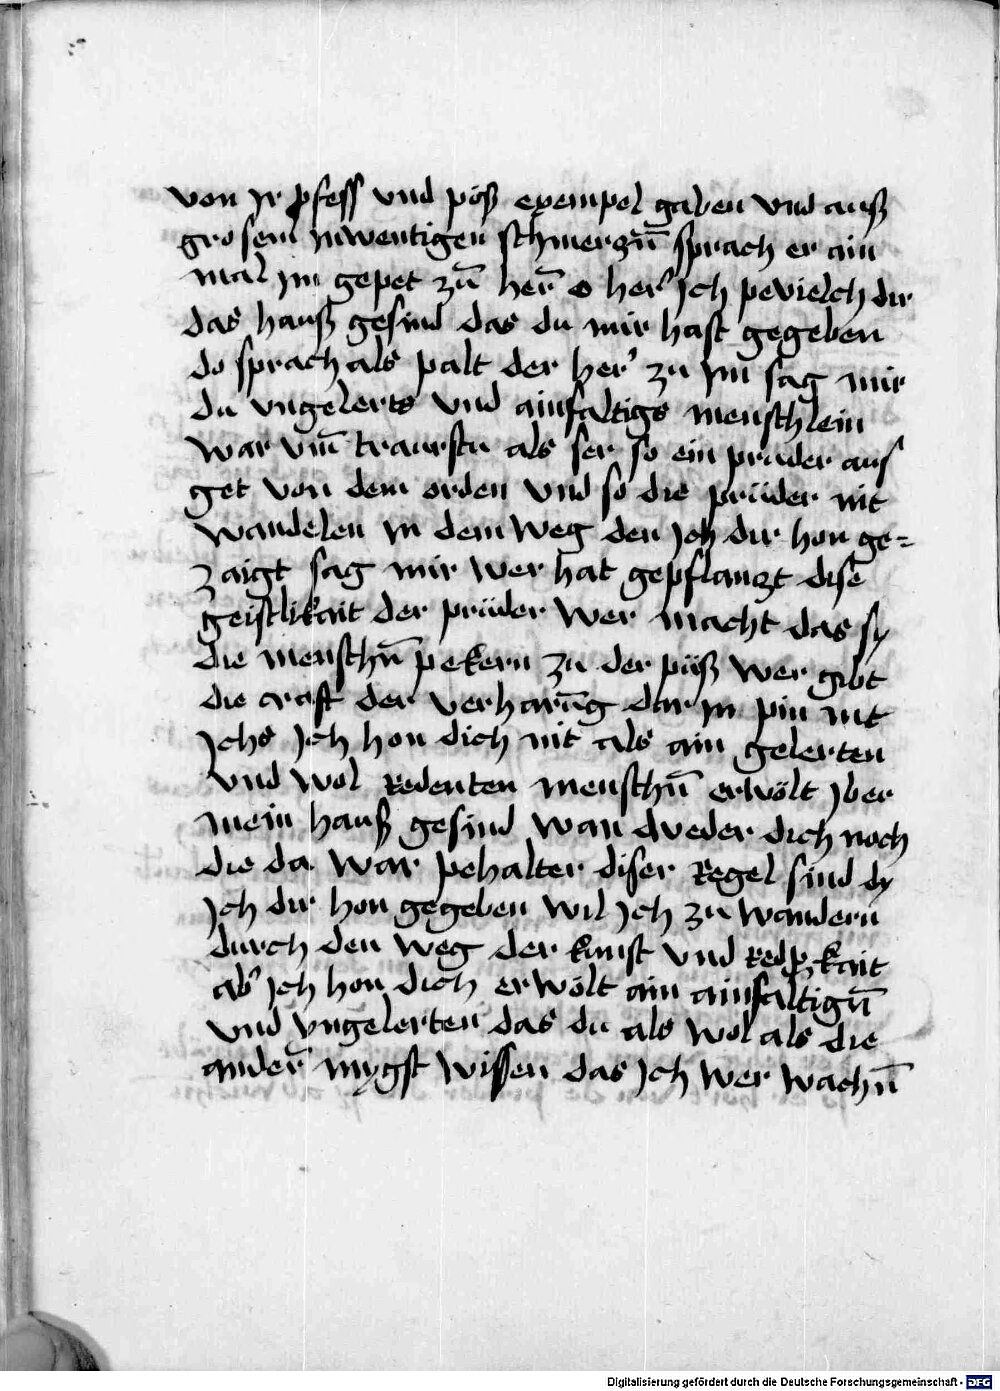 von jr pfess vnd pöß exempel gaben vnd auß
grosem jnwentigen schmerzñ sprach er ain
mal jm gepet zū her̄ o her' jch pevielch dir
das hauß gesind das du mir hast gegeben
do sprach als palt der her' zu jm sag mir
du vngelerts vnd ainfaltigs menschlein
war vm̄ traurstu als ser so ein pruder aus
get von dem orden vnd so die prüder nit
wandelen jn dem weg den jch dir hon ge=
zaigt sag mir wer hat gepflanzt dise
geistlikait der prüder wer macht das sy
die menschñ pekern zu der püß wer gibt
die craft der verharūg dar jn pin nit
jchs jch hon dich nit als ain gelerten
vnd wol redenten menschñ erwölt jber
mein hauß gesind wan dweder dich noch
die da war pehalter diser regel sind dy
jch dir hon gegeben wil jch zu wandern
durch den weg der kunst vnd kait
ab' jch hon dich erwölt ain ainfaltigñ
vnd vngelerten das du als wol als die
ander̄ mygst wissen das jch wer wachñ
Digitalisierung gefördert durch die Deutsche Forschungsgemeinschaft - DFG